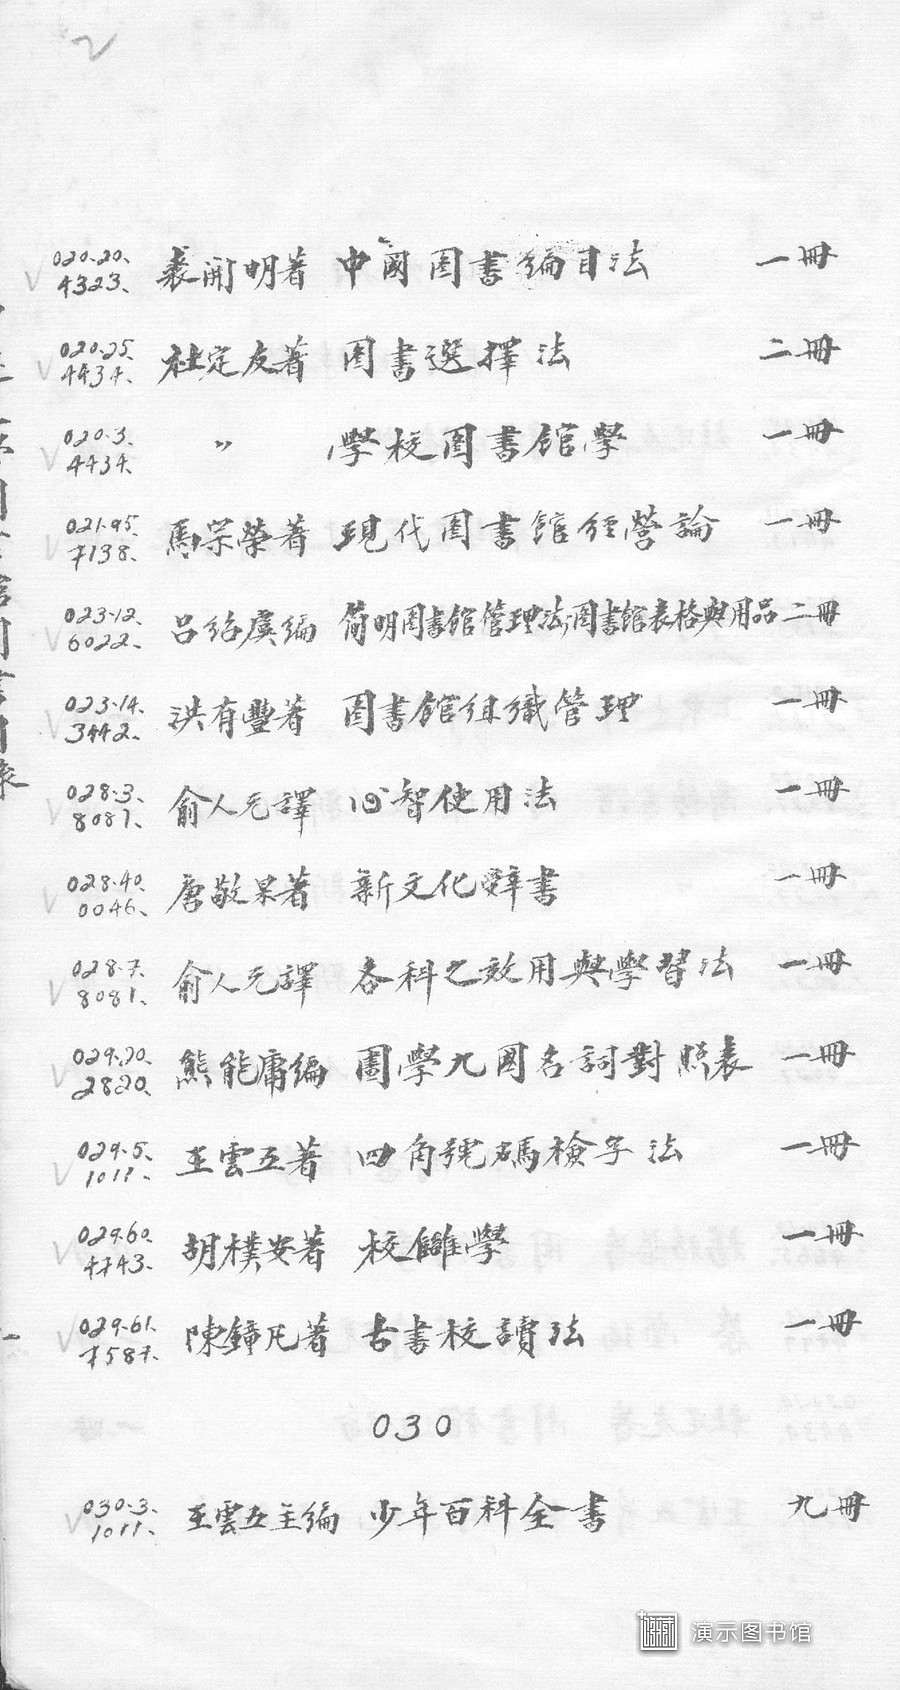 2
020.20. 4323. 裘開明著 中國圖書編目法 一冊
020.25. 4434. 杜定友著 圖書選擇法 二冊
020.3. 4434. 〃 學校圖書館學 一冊
021.95. 7138. 馬宗榮著 現代圖書館經營論 一冊
023.12. 6022. 呂紹虞編 簡明圖書館管理法;圖書館表格與用品 二冊
023.14. 3442. 洪有豐著 圖書館組織管理 一冊
028.3. 8081. 俞人元譯 心智使用法 一冊
028.40. 0046. 唐敬杲著 新文化辭書 一冊
028.7. 8081. 俞人元譯 各科之效用與學習法 一冊
029.20. 2820. 熊能庸編 圖學九國名詞對照表 一冊
029.5. 1011. 王雲五著 四角號碼檢字法 一冊
029.60. 4743. 胡樸安著 校讎學 一冊
029.61. 7587. 陳鐘凡著 古書校讀法 一冊
030
030.3. 1011. 王雲五主編 少年百科全書 九冊
演示图书馆